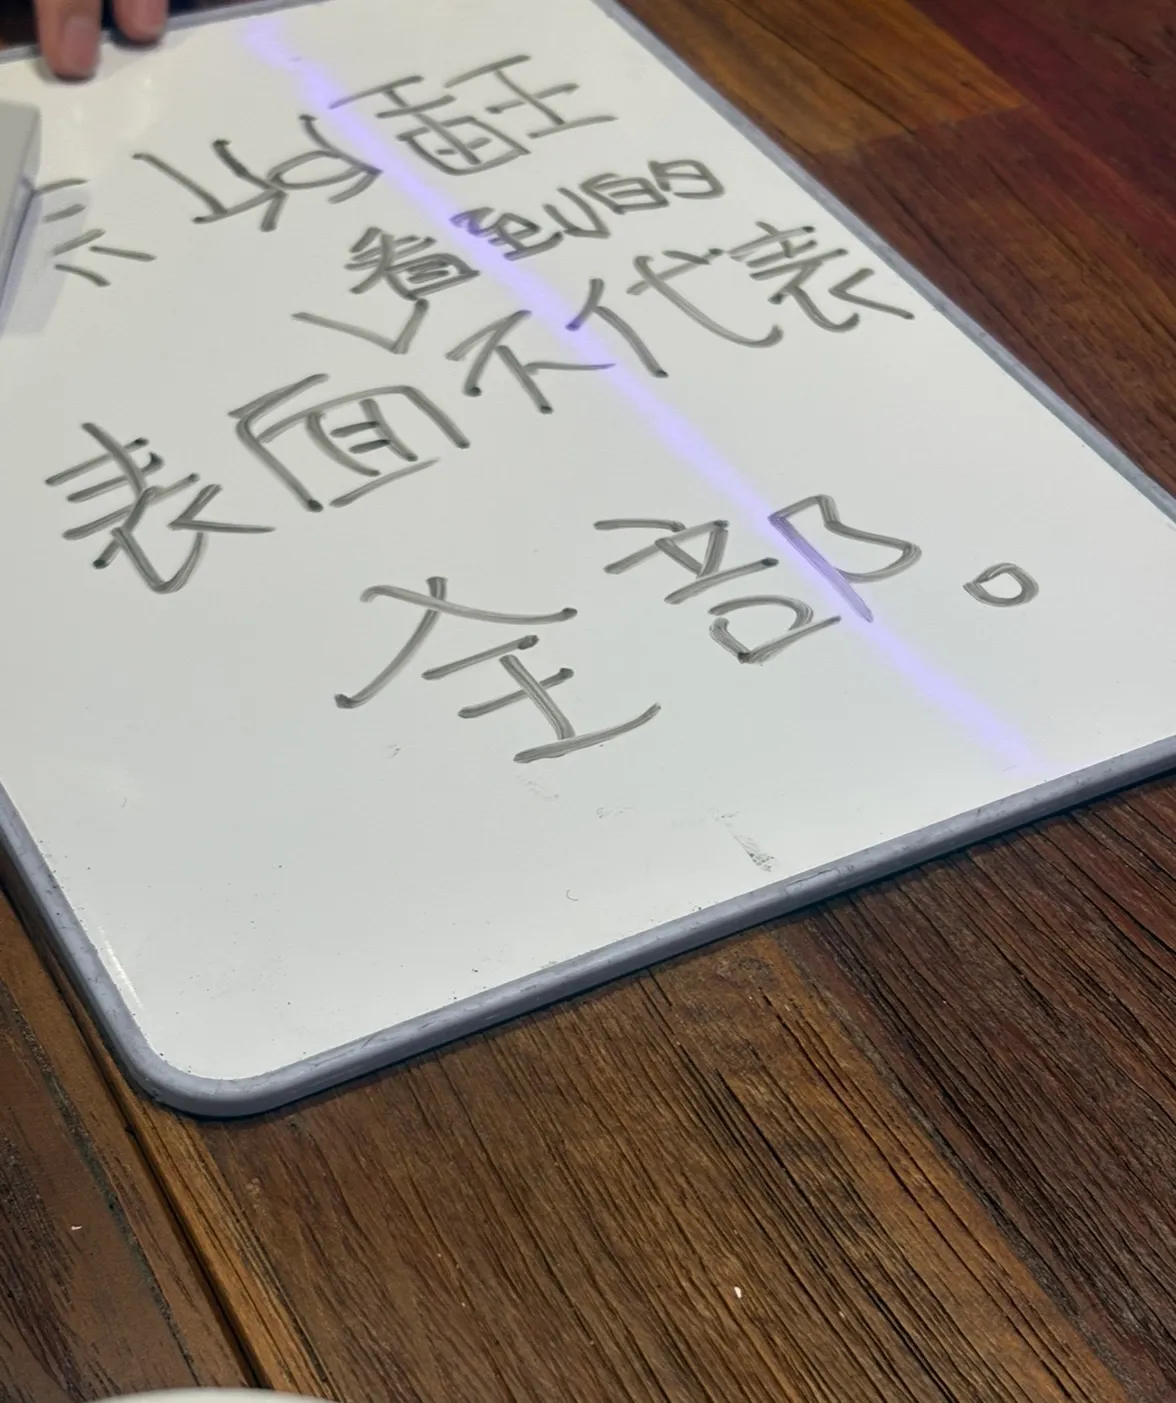 看到的
表面不代表
全部。